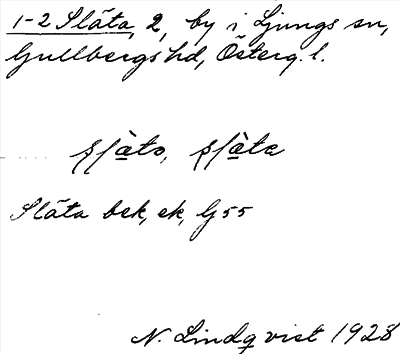 1-2 Släta, 2, by i Ljungs sn,
Gullbergs hd, Österg. l.
slàto, slàta
Släta bek, ek, G 55
N. Lindqvist 1928